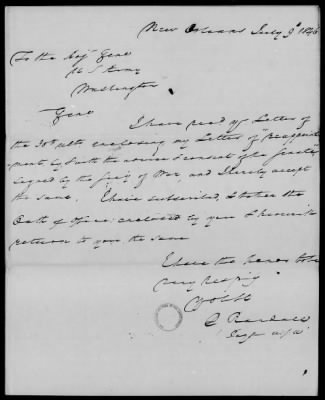 New Orleans July 9th 1846
To the Adj Genl
U S Army
Washington
Genl
I have recd yr Letter of
the 30th ulto enclosing my Letter of "Reappoint
ment by & with the advice & consent of the Senate"
signed by the Secy of War, and I hereby accept
the same. I have subscribed, & taken the
Oath of Office enclosed by you & herewith
return to you the same
I have the honor to be
very respy
Yr Ob St